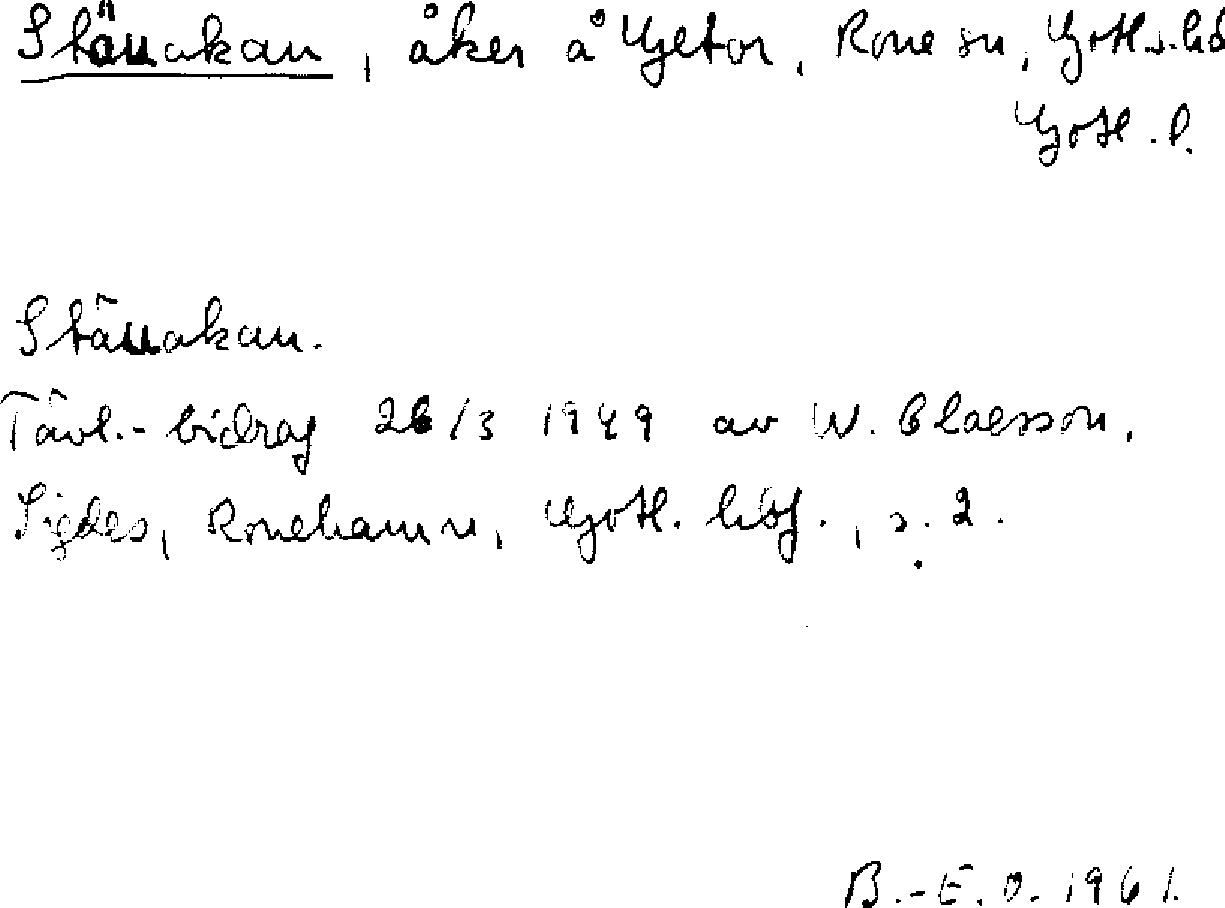 Stäuakau, åker å Gjetor, Rone sn, Gotl.s. hd
Gotl. l.
Stäuakau.
Tävl.-bidrag 26/3 1949 av W. Claesson,
Sigdes, Ronehamn, Gotl. hbg., s. 2.
B.-E. O. 1961.